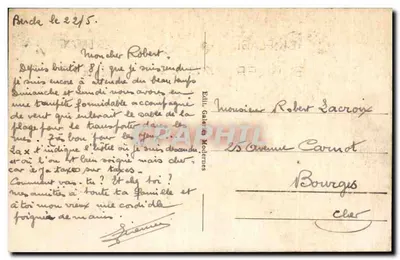 Berck le 22/5.
Mon cher Robert.
Depuis bientôt 8 j. que je suis rendu
je suis encore à attendre du beau temps
Dimanche et Lundi nous avons eu
une tempête formidable accompagnée
de vent qui enlevait le sable de la
plage pour le transporter dans les
La x t'indique l'hôtel où je suis descendu
et où l'on est bien soigné mais cher
car il y a taxes sur taxes.
Comment vas-tu ? Et chez toi ?
Mes amitiés à toute ta famille et
à toi mon vieux une cordiale
poignée de mains.
Edit. Galeries Modernes
Monsieur Robert Lacroix
25 Avenue Carnot
Bourges
Cher